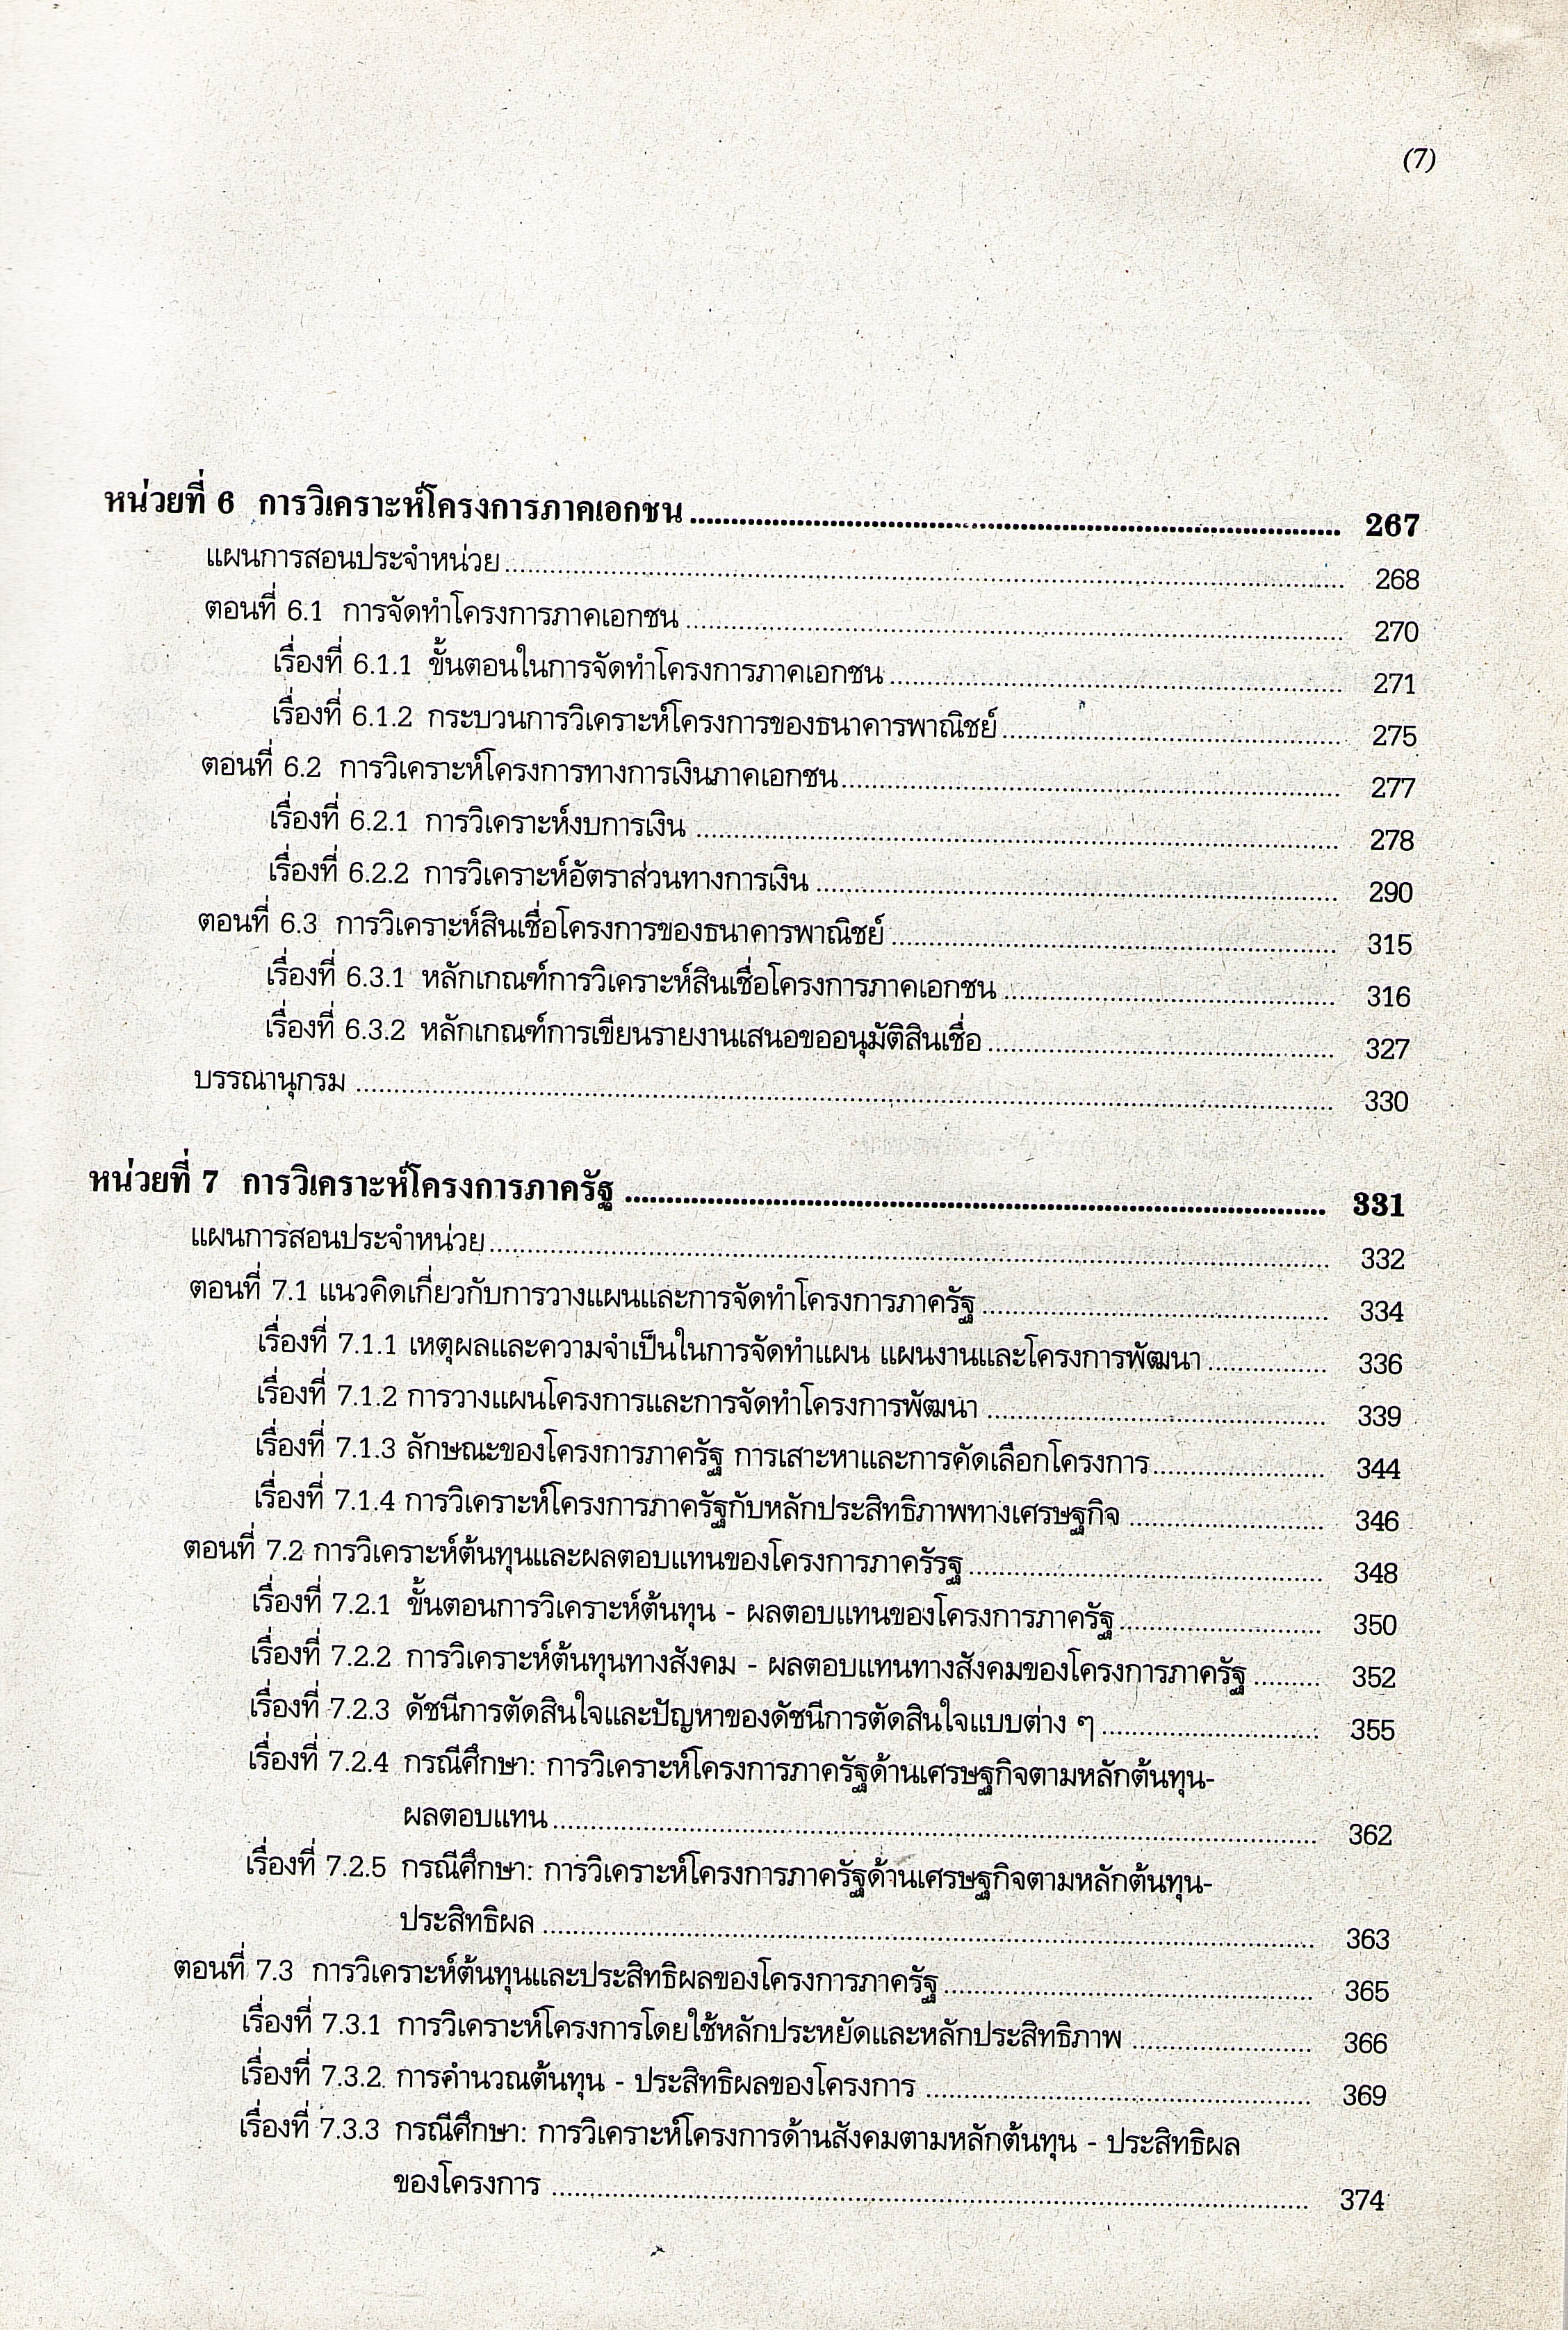 (7)
หน่วยที่ 6 การวิเคราะห์โครงการภาคเอกชน ........ 267
แผนการสอนประจำหน่วย ........ 268
ตอนที่ 6.1 การจัดทำโครงการภาคเอกชน ........ 270
เรื่องที่ 6.1.1 ขั้นตอนในการจัดทำโครงการภาคเอกชน ........ 271
เรื่องที่ 6.1.2 กระบวนการวิเคราะห์โครงการของธนาคารพาณิชย์ ........ 275
ตอนที่ 6.2 การวิเคราะห์โครงการทางการเงินภาคเอกชน ........ 277
เรื่องที่ 6.2.1 การวิเคราะห์งบการเงิน ........ 278
เรื่องที่ 6.2.2 การวิเคราะห์อัตราส่วนทางการเงิน ........ 290
ตอนที่ 6.3 การวิเคราะห์สินเชื่อโครงการของธนาคารพาณิชย์ ........ 315
เรื่องที่ 6.3.1 หลักเกณฑ์การวิเคราะห์สินเชื่อโครงการภาคเอกชน ........ 316
เรื่องที่ 6.3.2 หลักเกณฑ์การเขียนรายงานเสนอขออนุมัติสินเชื่อ ........ 327
บรรณานุกรม ........ 330
หน่วยที่ 7 การวิเคราะห์โครงการภาครัฐ ........ 331
แผนการสอนประจำหน่วย ........ 332
ตอนที่ 7.1 แนวคิดเกี่ยวกับการวางแผนและการจัดทำโครงการภาครัฐ ........ 334
เรื่องที่ 7.1.1 เหตุผลและความจำเป็นในการจัดทำแผน แผนงานและโครงการพัฒนา ........ 336
เรื่องที่ 7.1.2 การวางแผนโครงการและการจัดทำโครงการพัฒนา ........ 339
เรื่องที่ 7.1.3 ลักษณะของโครงการภาครัฐ การเสาะหาและการคัดเลือกโครงการ ........ 344
เรื่องที่ 7.1.4 การวิเคราะห์โครงการภาครัฐกับหลักประสิทธิภาพทางเศรษฐกิจ ........ 346
ตอนที่ 7.2 การวิเคราะห์ต้นทุนและผลตอบแทนของโครงการภาครัรฐ ........ 348
เรื่องที่ 7.2.1 ขั้นตอนการวิเคราะห์ต้นทุน - ผลตอบแทนของโครงการภาครัฐ ........ 350
เรื่องที่ 7.2.2 การวิเคราะห์ต้นทุนทางสังคม - ผลตอบแทนทางสังคมของโครงการภาครัฐ ........ 352
เรื่องที่ 7.2.3 ดัชนีการตัดสินใจและปัญหาของดัชนีการตัดสินใจแบบต่าง ๆ ........ 355
เรื่องที่ 7.2.4 กรณีศึกษา: การวิเคราะห์โครงการภาครัฐด้านเศรษฐกิจตามหลักต้นทุน-
ผลตอบแทน ........ 362
เรื่องที่ 7.2.5 กรณีศึกษา: การวิเคราะห์โครงการภาครัฐด้านเศรษฐกิจตามหลักต้นทุน-
ประสิทธิผล ........ 363
ตอนที่ 7.3 การวิเคราะห์ต้นทุนและประสิทธิผลของโครงการภาครัฐ ........ 365
เรื่องที่ 7.3.1 การวิเคราะห์โครงการโดยใช้หลักประหยัดและหลักประสิทธิภาพ ........ 366
เรื่องที่ 7.3.2 การคำนวณต้นทุน - ประสิทธิผลของโครงการ ........ 369
เรื่องที่ 7.3.3 กรณีศึกษา: การวิเคราะห์โครงการด้านสังคมตามหลักต้นทุน - ประสิทธิผล
ของโครงการ ........ 374